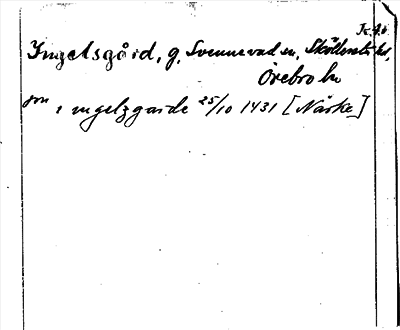 Ingelsgård, g, Svennevad sn, Sköllersta hd,
Örebro län
jon i ingelzgarde 25/10 1431 [Närke]